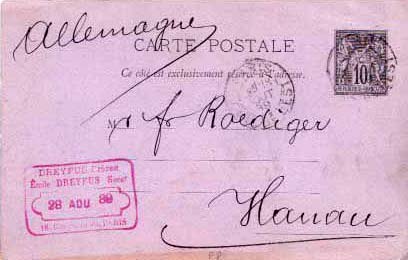 Allemagne
CARTE POSTALE
Ce côté est exclusivement réservé à l'adresse.
10
M fr Roediger
DREYFUS
Émile DREYFUS Succr
28 AOU 89
PARIS
Hanau